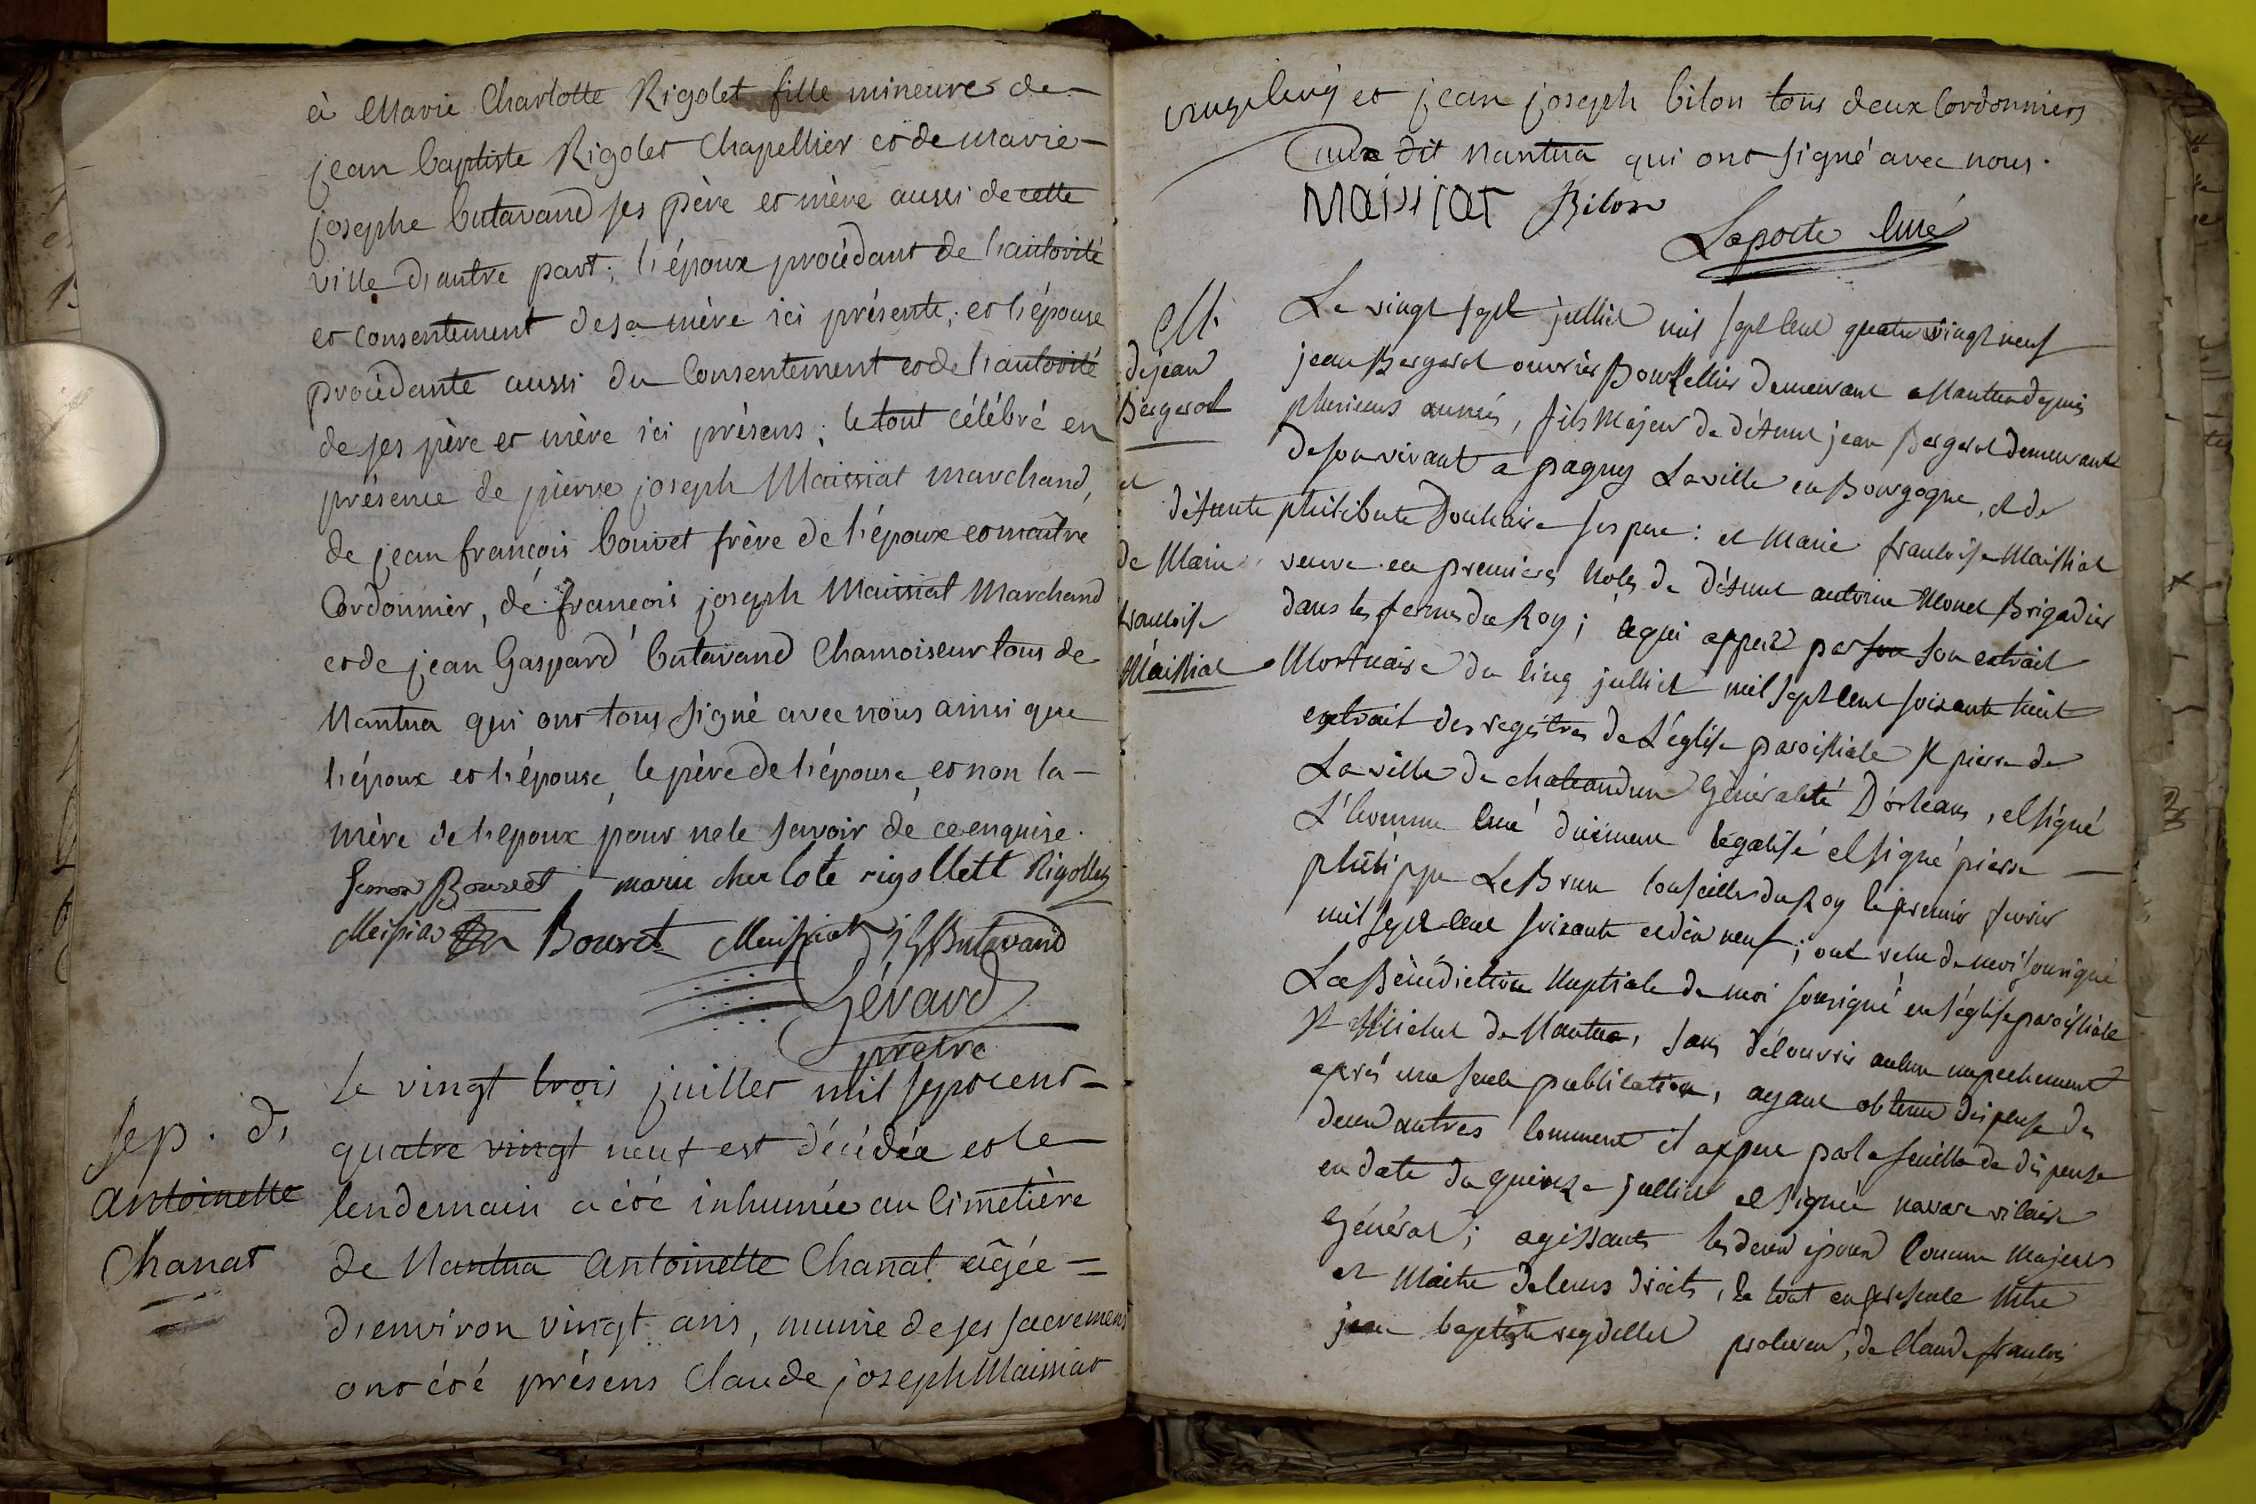 à Marie Charlotte Rigolet fille mineure de
jean baptiste Rigolet Chapellier et de marie
josephe butavand ses père et mère aussi de cette
ville d'autre part; l'époux procédant de l'autorité
et consentement de sa mère ici présente; et l'épouse
procédante aussi du Consentement et de l'autorité
de ses père et mère ici présens; le tout célébré en
présence de pierre joseph Maissiat marchand,
de jean françois bouvet frère de l'époux et maitre
Cordonnier, de françois joseph Maissiat Marchand
et de jean Gaspard butavand Chamoiseur tous de
Nantua qui ont tous signé avec nous ainsi que
l'époux et l'épouse, le père de l'épouse, et non la
mère de l'epoux pour ne le savoir de ce enquise.
Bouvet marie charlote rigollett Rigollet
Meissiat Bouvet Meissiat JG Butavand
Gérard
prètre
Sep. d'
antoinette
Chanat
Le vingt trois juillet mil sept cent
quatre vingt neuf est décédée et le
lendemain a été inhumée au Cimetière
de Nantua antoinette Chanat âgée
d'environ vingt ans, munie de ses sacremens
ont été présens Claude joseph Maissiat
et jean joseph bilon tous deux Cordonniers
dit nantua qui ont signé avec nous.
Maissiat Bilon
Laporte Curé
M.
de jean
Bergerot
et
de Marie
francoise
Maissiat
Le vingt sept julliet mil sept cent quatre vingt neuf
jean Bergerot ouvrier Bourellier demeurant a Nantua depuis
plusieurs années, fils Majeur de défunt jean Bergerot demeurant
de son vivant a pagny Laville en Bourgogne, et de
défunte philiberte ses pere: et Marie francoise Maissiat
veuve en premieres Noces de défunt antoine Monet Brigadier
dans les fermes du Roy; ce qui appert par son extrait
Mortuaire du cinq julliet mil sept cent soixante huit
extrait des registres de L'église paroissiale St pierre de
La ville de chateaudun Généralité D'orleans, et signé
L'homme Curé duëment légalisé et signé pierre
philippe LeBrun Conseiller du Roy le premier fevrier
mil sept cent soixante et dix neuf; ont reçu de moi sousigné
La Bénédiction Nuptiale de moi sousigné en l'église paroissiale
St Michel de Nantua, sans découvrir aucun empechement
après une seule publication, ayant obtenu dispense des
deux autres comment il appere par la feuille de dispense
en date du quinze julliet et signée navare vicaire
Général; agissants les deux époux Comme Majeurs
et Maitre de leurs droits, le tout en presence Mtre
jean baptiste reydellet procureur, de Claude francois